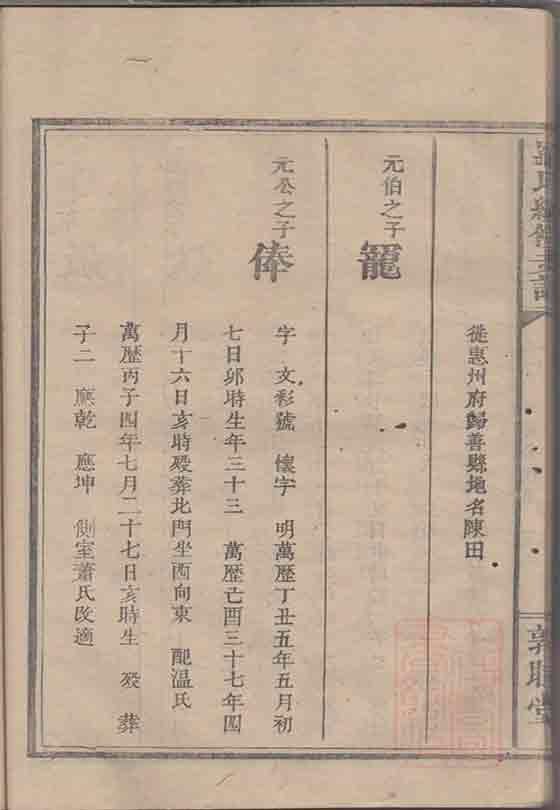 從惠州府歸善縣地名陳田
元伯之子
寵
元公之子
俸
字 文彩號 懷宇 明萬歷丁丑五年五月初
七日卯時生年三十三 萬歷己酉三十七年四
月十六日亥時歿葬北門坐酉向東 配溫氏
萬歷丙子四年七月二十七日亥時生 歿 葬
子二 應乾 應坤 側室蕭氏改適